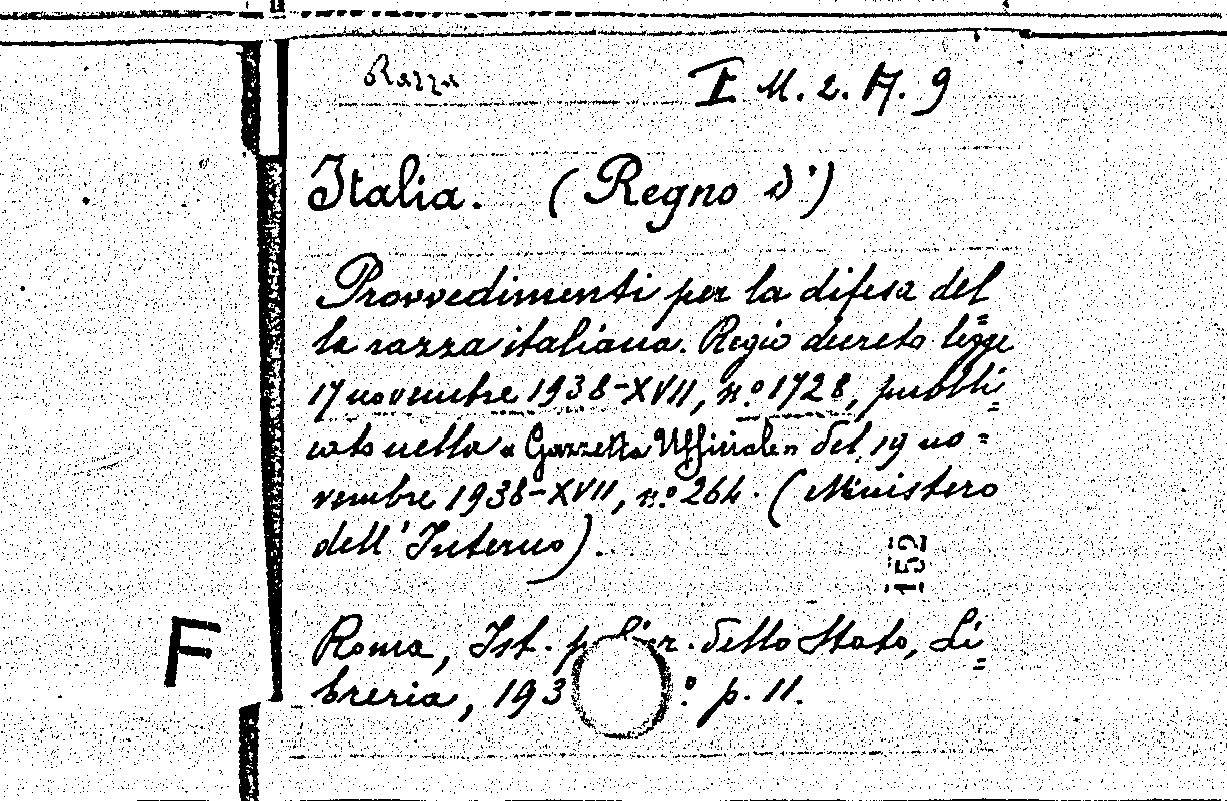 Razza
I M. 2. A. 9
Italia. (Regno d')
Provvedimenti per la difesa del=
la razza italiana. Regio decreto legge
17 novembre 1938-XVII, n.° 1728, pubbli=
cato nella "Gazzetta Ufficiale" del 19 no=
vembre 1938-XVII, n.° 264. (Ministero
dell'Interno).
152
F
Roma, Ist. dello Stato, Li=
breria, 193 ° p. 11.